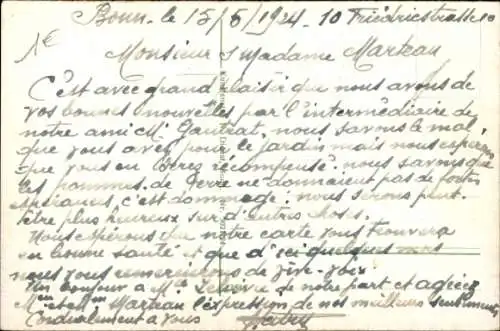 Bonn. le 15/5/1924 - 10 Friedrichstrasse 10
Monsieur & Madame Marteau
C'est avec grand plaisir que nous avons de
vos bonnes nouvelles par l'intermédiaire de
notre ami Mr Gautrat, nous savons le mal
que vous avez pour le jardin mais nous espérons
que vous en serez récompensé. nous savons que
les pommes de Terre ne donnaient pas de fortes
espérances, c'est dommage, nous serons peut
être plus heureux sur d'autres choses.
Nous espérons que notre carte vous trouvera
en bonne santé et que d'ici quelques mois
nous vous remercierons de vive-voix.
Un bonjour à Mr de notre part et agréez
Mr et Mme Marteau l'expression de nos meilleurs sentiments
Cordialement à vous